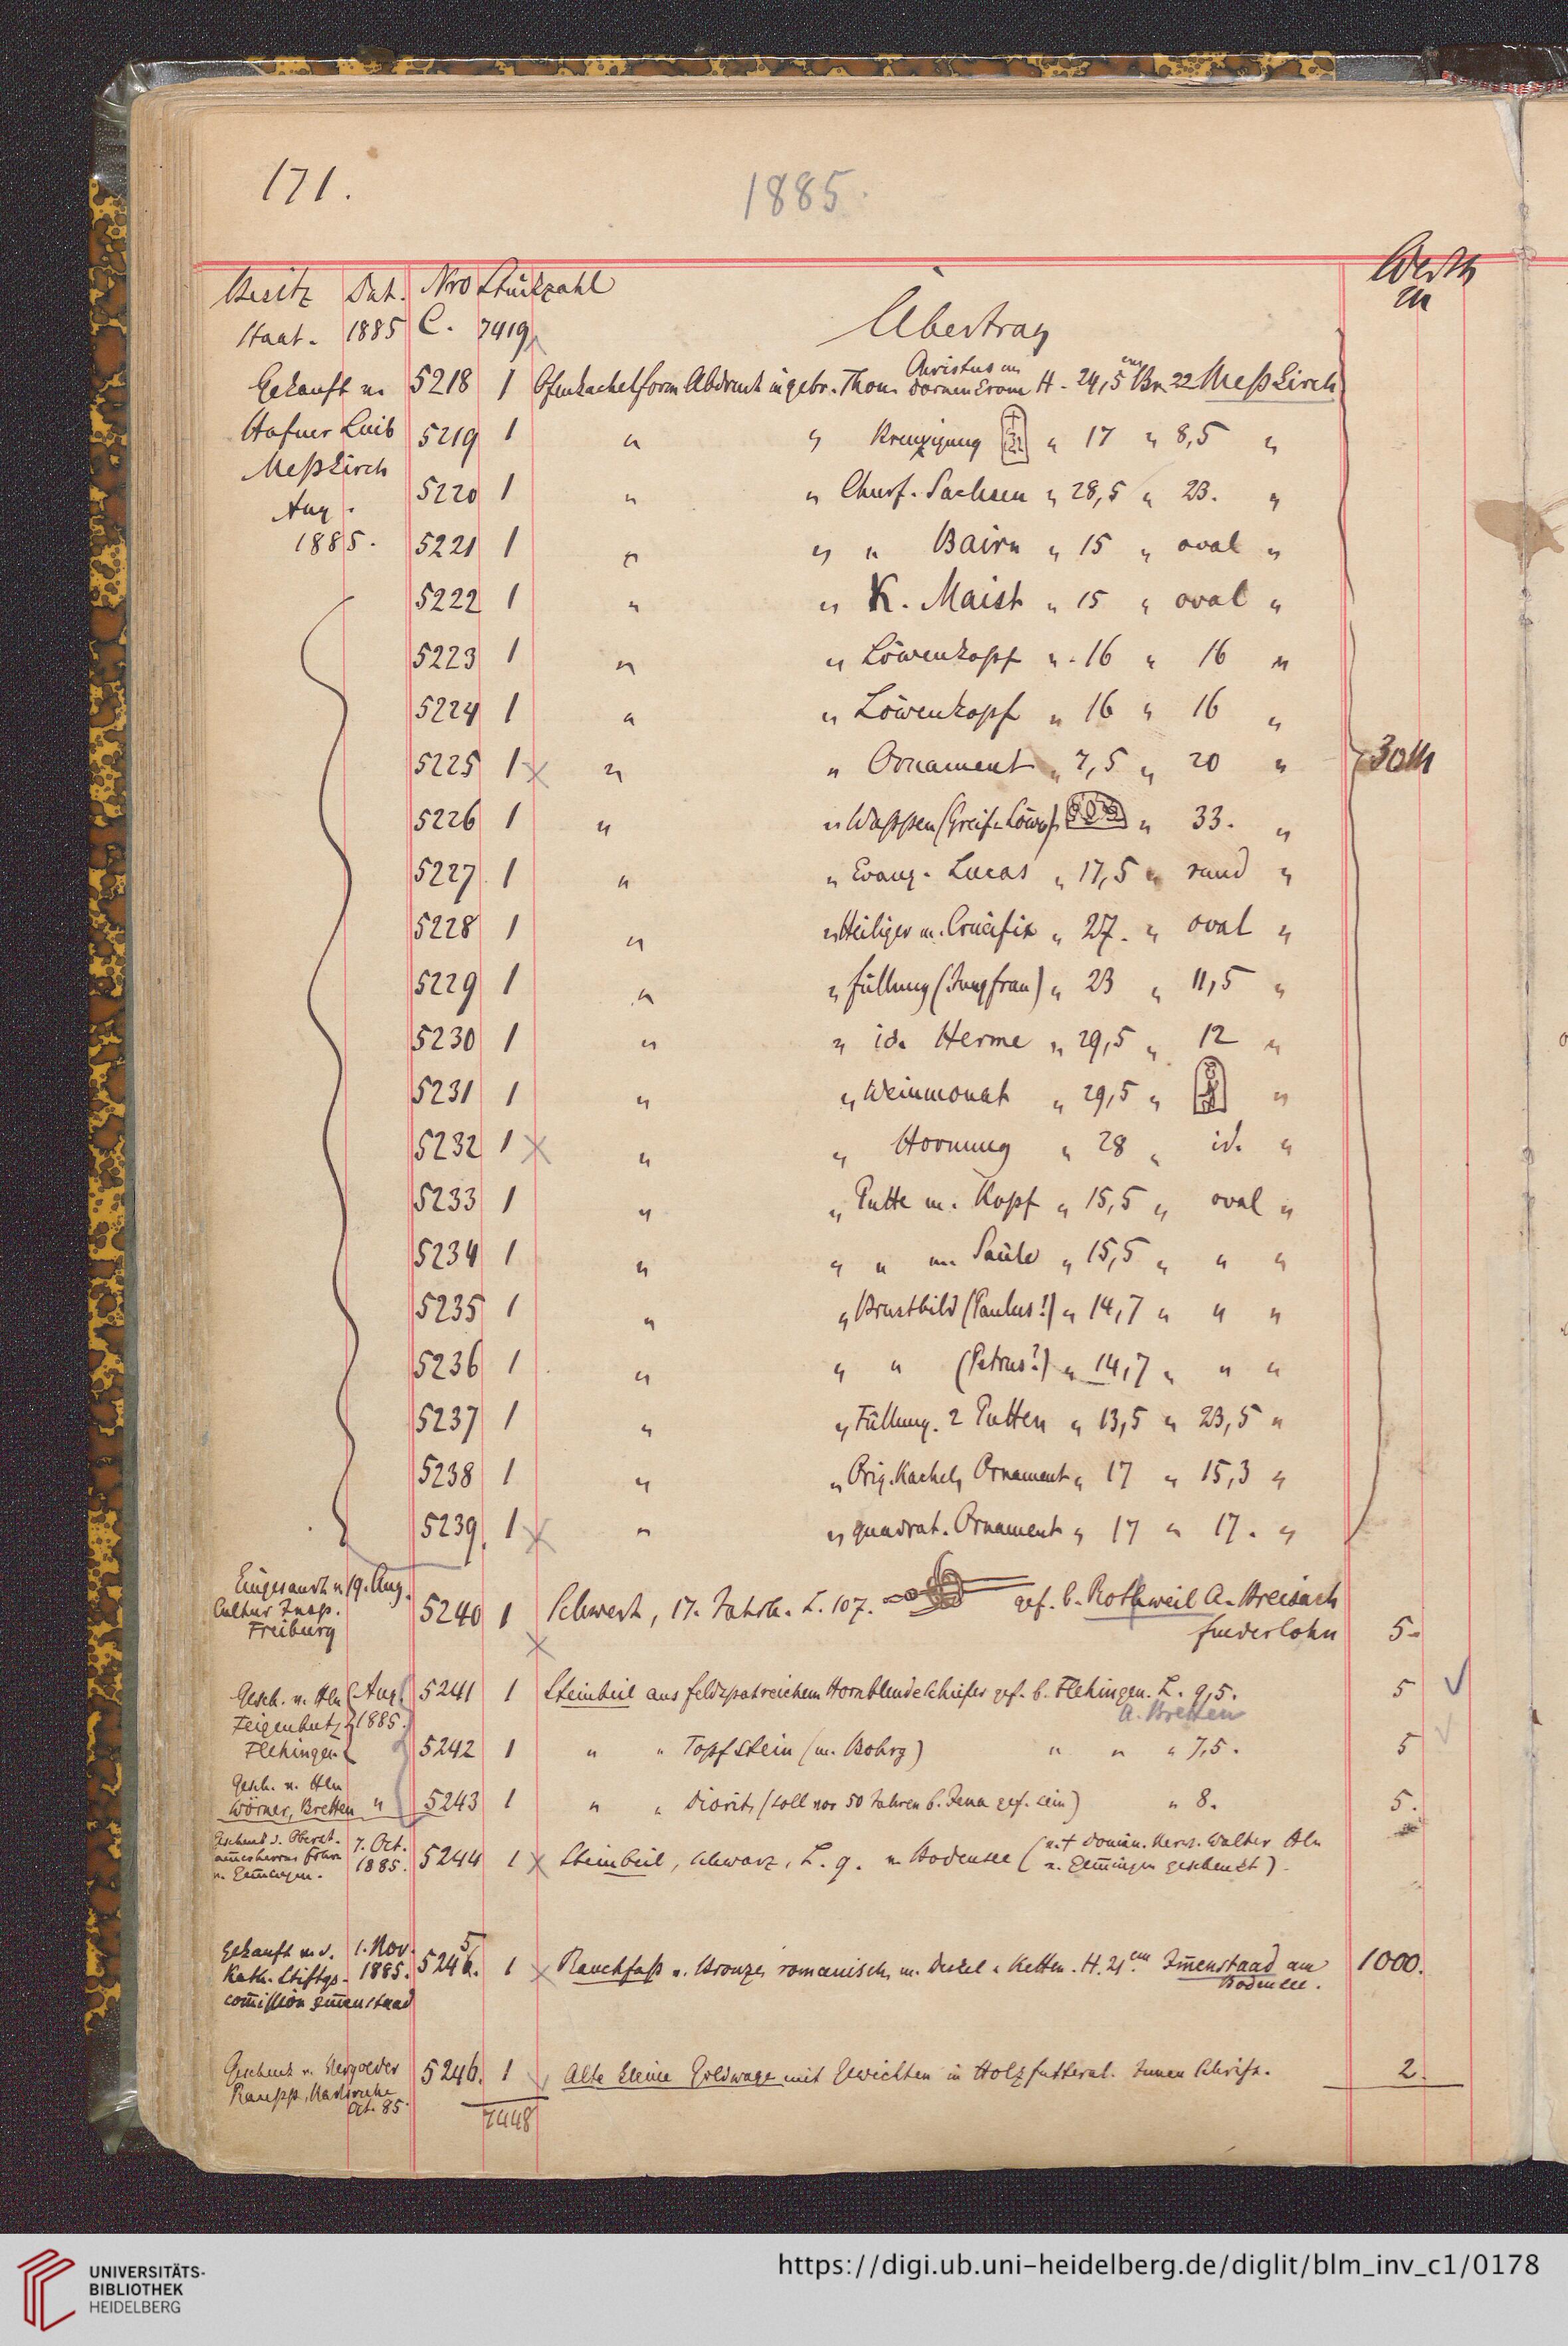 171.
1885.
Besitz Dat. Nro Stückzahl Werth
Staat. 1885 C. 7419 Übertrag M
Gekauft v. 5218 1 Ofenkachelform Abdruck in gebr. Thon. Christus m. Dornenkrone H. 24,5 cm Br. 22 Meßkirch
Hafner Luib 5219 1 " " Kreuzigung " 17 " 8,5 "
Meßkirch 5220 1 " " Churf. Sachsen " 28,5 " 23. "
Aug.
1885. 5221 1 " " " Bairn " 15 " oval "
5222 1 " " K. " 15 " oval "
5223 1 " " Löwenkopf " 16 " 16 "
5224 1 " " Löwenkopf " 16 " 16 "
5225 1 " " Ornament " 7,5 " 20 " 30 M
5226 1 " " Wappen (Greif u. Löwe) " 33. "
5227 1 " " Evang. Lucas " 17,5 " rund "
5228 1 " " Heiliger m. Crucifix " 27. " oval "
5229 1 " " Füllung (Jungfrau) " 23 " 11,5 "
5230 1 " " id. Herme " 29,5 " 12 "
5231 1 " " Weinmonat " 29,5 " "
5232 1 " " Hornung " 28 " id. "
5233 1 " " Putte m. Kopf " 15,5 " oval "
5234 1 " " " m. Säule " 15,5 " " "
5235 1 " " Brustbild (Paulus?) " 14,7 " " "
5236 1 " " " (Petrus?) " 14,7 " " "
5237 1 " " Füllung. 2 Putten " 13,5 " 23,5 "
5238 1 " " Orig. Kachel, Ornament " 17 " 15,3 "
5239. 1 " " quadrat. Ornament " 17 " 17. "
Eingesandt v. 19. Aug.
Cultur Insp. 5240 1 Schwert, 17. Jahrh. L. 107. gef. b. Rothweil A. Breisach
Freiburg Fuderlohn 5.
Gesch. v. Hln Aug. 5241 1 Steinbeil aus feldspatreichem Hornblendeschiefer gef. b. Flehingen. L. 9,5. 5
Feigenbutz 1885. A. Bretten
Flehingen 5242 1 " " Topfstein (m. Bohrg) " " " 7,5. 5
Gesch. v. Hln
Wörner, Bretten " 5243 1 " " Diorit, (soll vor 50 Jahren b. Jena gef. sein) " 8. 5.
Geschenk d. Oberst- 7. Oct.
kammerherrn Frhrn 1885. 5244 1 Steinbeil, schwarz, L. 9. v. Bodensee (v. † Domän. Verw. Walter Hln
v. Gem̄ingen. v. Gem̄ingen geschenkt).
Gekauft v. d. 1. Nov.
Kath. Stiftgs- 1885. 5245. 1 Rauchfaß v. Bronze, romanisch, m. Deckel u. Ketten. H. 21 cm. Im̄enstaad am 1000.
com̄ission Im̄enstaad Bodensee.
Geschenk v. Vergolder 5246. 1 Alte kleine Goldwage mit Gewichten in Holzfutteral. Innen Schrift. 2.
Raupp, Karlsruhe
Oct. 85. 7448
UNIVERSITÄTS-
BIBLIOTHEK
HEIDELBERG
https://digi.ub.uni-heidelberg.de/diglit/blm_inv_c1/0178